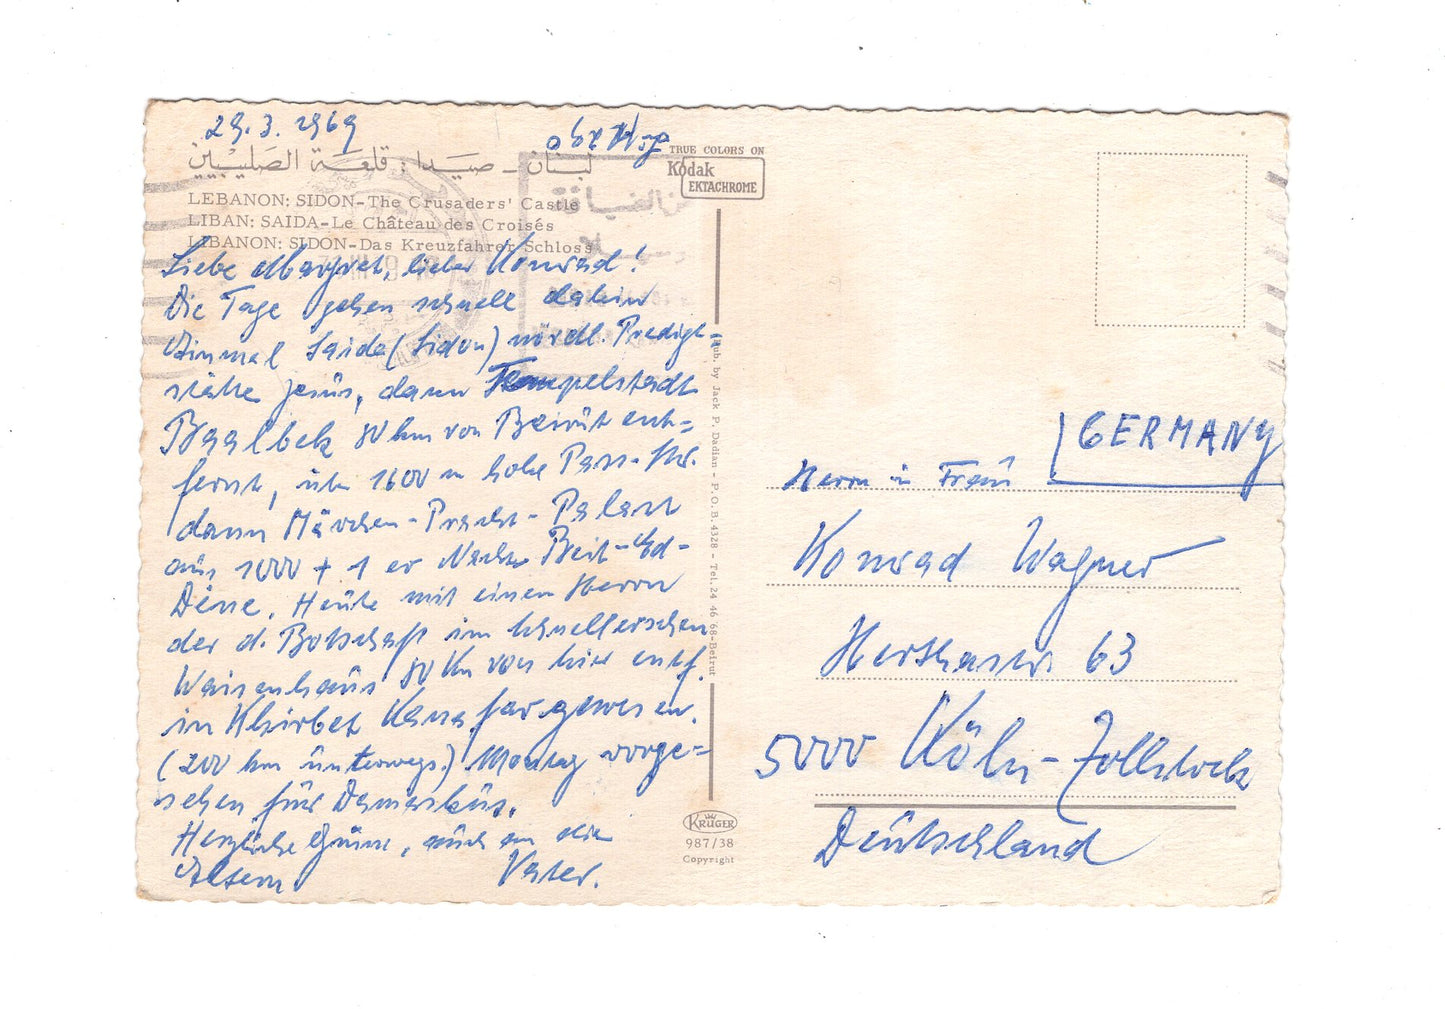 29.3.1969
لبنان - صيدا: قلعة الصليبيين
LEBANON: SIDON-The Crusaders' Castle
LIBAN: SAIDA-Le Château des Croisés
LEBANON: SIDON-Das Kreuzfahrer Schloss
Liebe Margret, lieber Konrad!
Die Tage gehen schnell dahin
Einmal Saida (Sidon) nördl. Predigt=
stätte Jesus, dann Tempelstadt
Baalbek 80 km von Beirut ent=
fernt, über 1600 m hohe Pass-Str.
dann Märchen-Pracht-Palast
aus 1000 + 1 er Nacht Beit-Ed-
Dine. Heute mit einem Herrn
der d. Botschaft im Schnellerschen
Waisenhaus 80 Km von hier entf.
in Khirbet Kanafar gewesen.
(200 km unterwegs.) Montag vorge=
sehen für Damaskus.
Herzliche Grüsse, auch an die
Eltern Vater.
TRUE COLORS ON
Kodak
EKTACHROME
Pub. by Jack P. Dadian - P.O.B. 4328 - Tel. 24 46 68-Beirut
KRÜGER
987/38
Copyright
GERMANY
Herrn u Frau
Konrad Wagner
Herthastr 63
5000 Köln-Zollstock
Deutschland